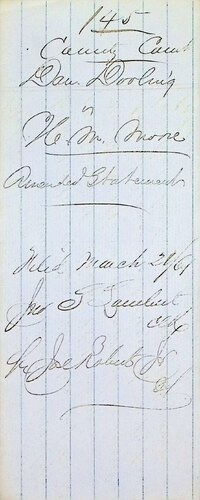 145
County Court
Dan Dooling
vs
H. M. Moore
Amended Statement
Filed March 21/61
Jno G Lambert
Clk
by Joe Roberts Jr